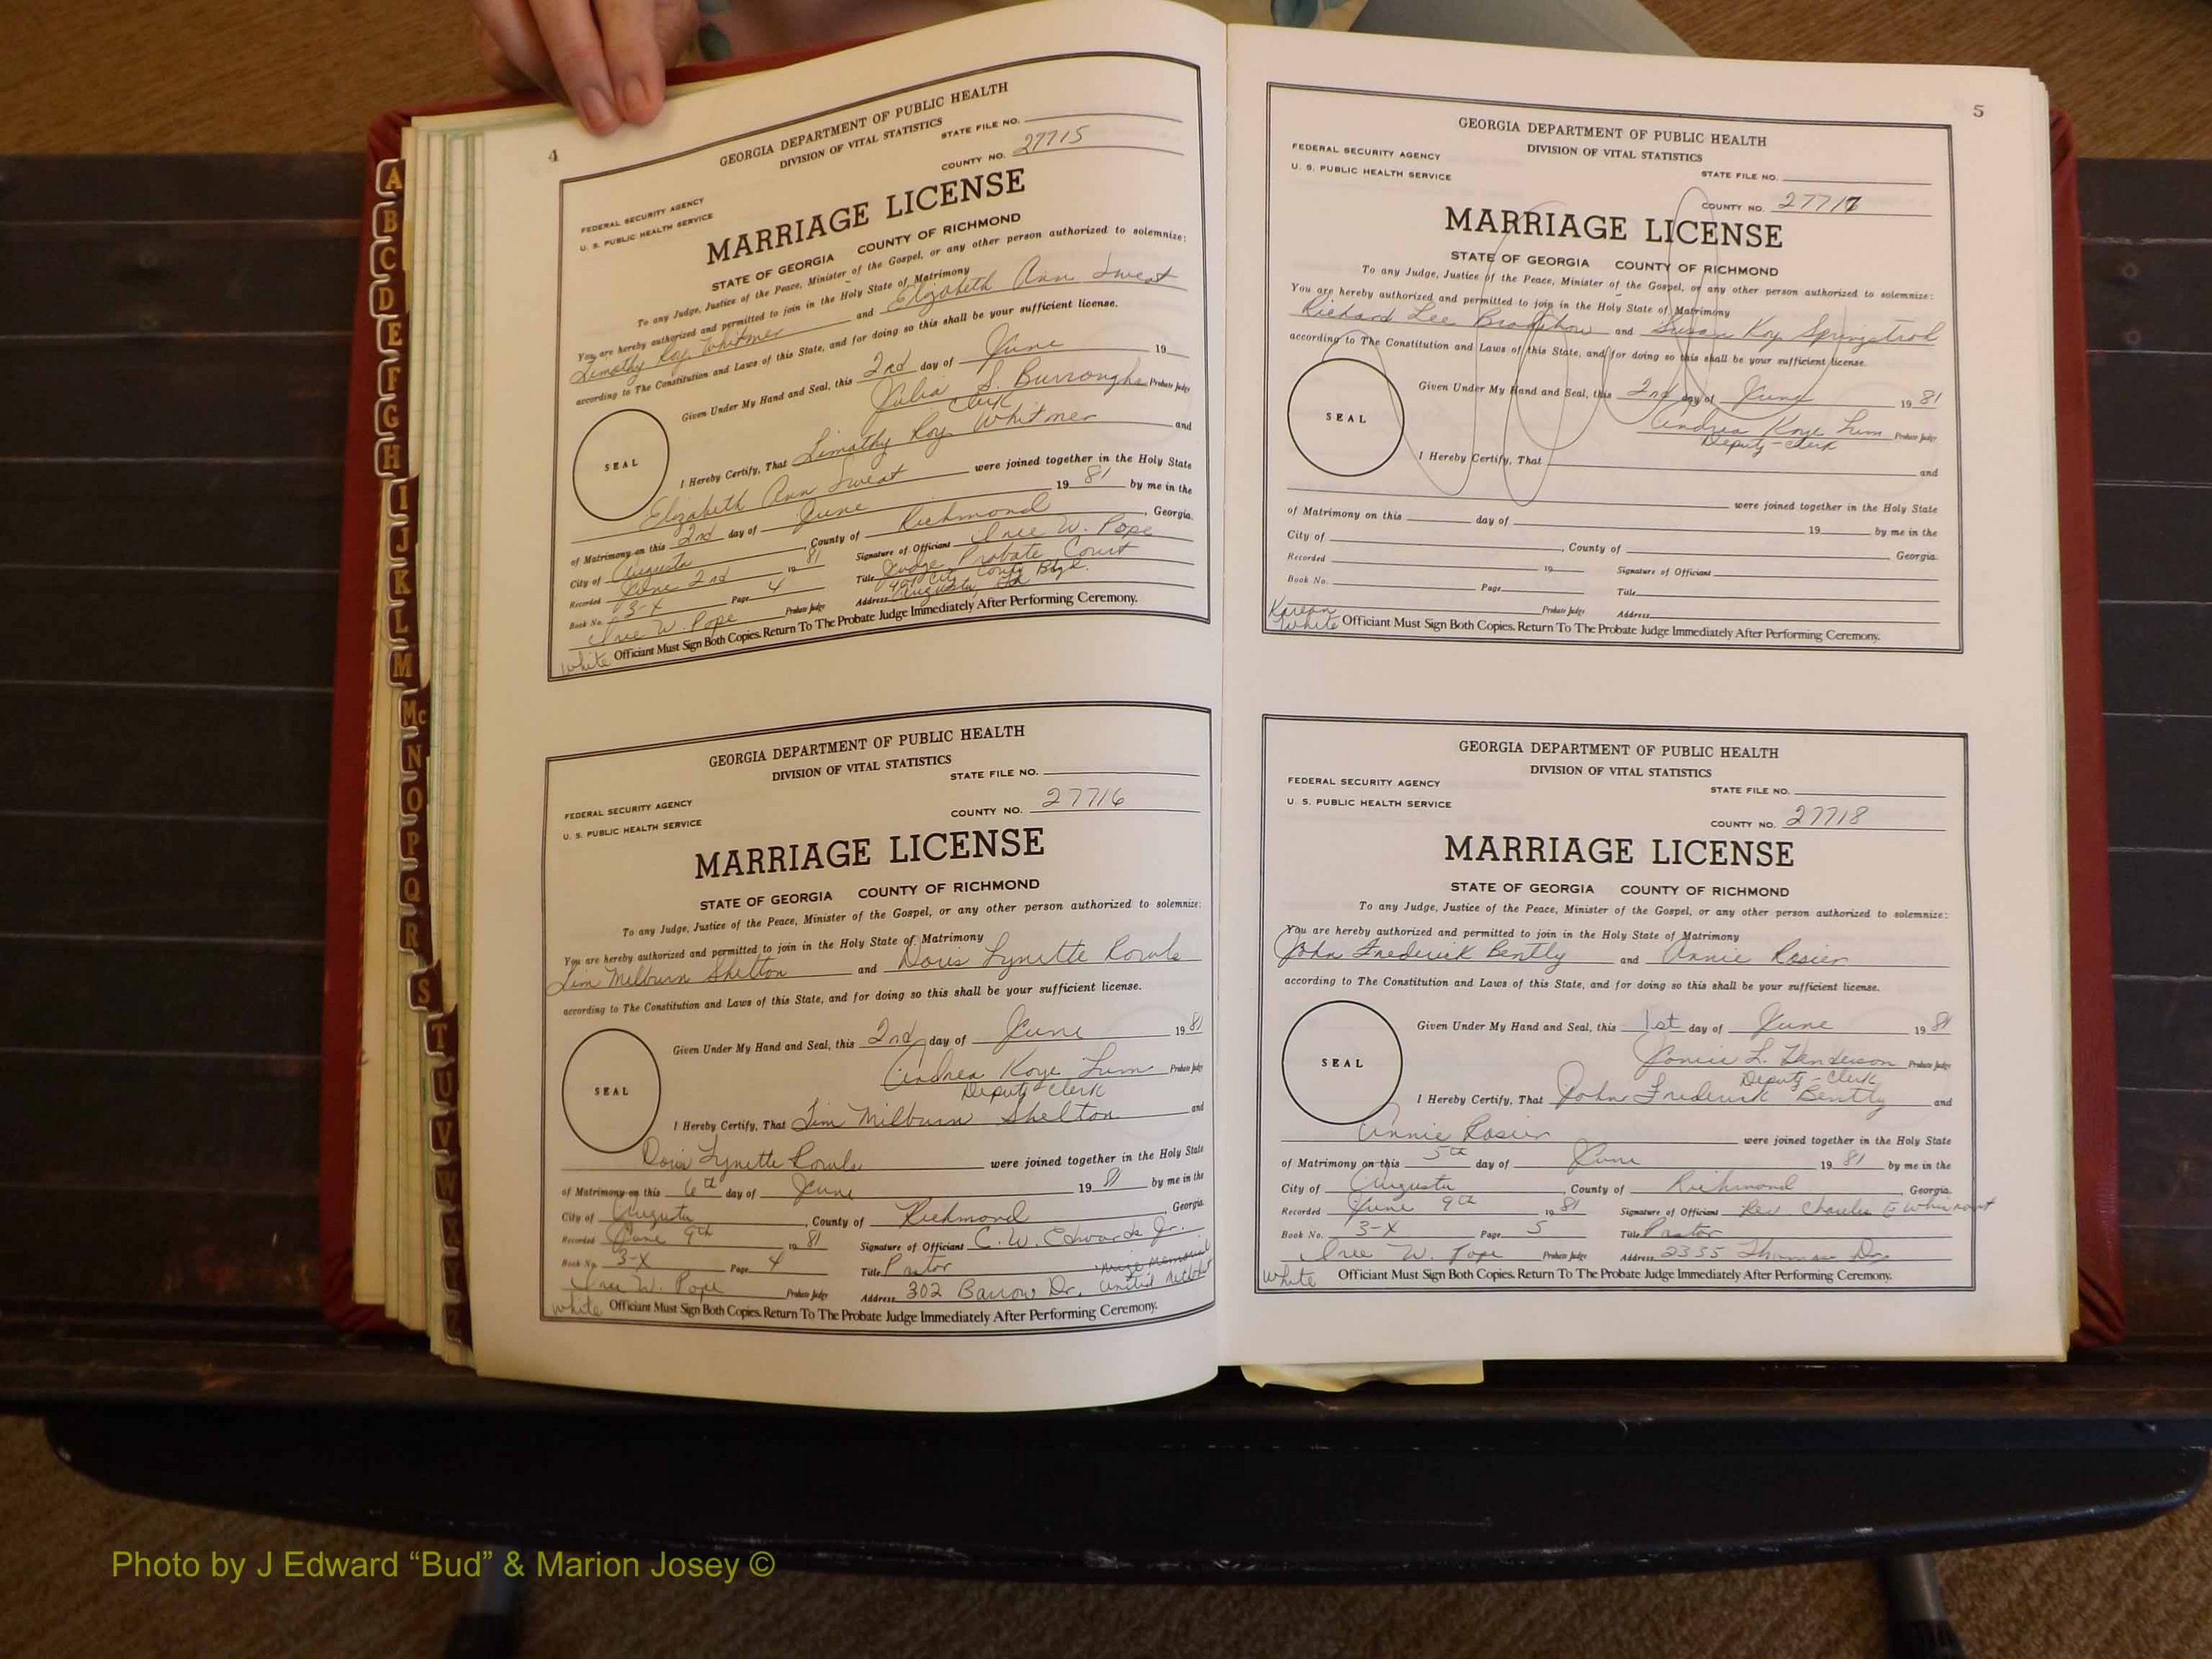 4
GEORGIA DEPARTMENT OF PUBLIC HEALTH
DIVISION OF VITAL STATISTICS
STATE FILE NO.
COUNTY NO. 27715
FEDERAL SECURITY AGENCY
U. S. PUBLIC HEALTH SERVICE
MARRIAGE LICENSE
STATE OF GEORGIA COUNTY OF RICHMOND
To any Judge, Justice of the Peace, Minister of the Gospel, or any other person authorized to solemnize:
You are hereby authorized and permitted to join in the Holy State of Matrimony
Timothy Roy Whitmer and Elizabeth Ann Sweat
according to The Constitution and Laws of this State, and for doing so this shall be your sufficient license.
Given Under My Hand and Seal, this 2nd day of June 19
Julia S. Burroughs Probate Judge
Clerk
SEAL
I Hereby Certify, That Timothy Roy Whitmer and
Elizabeth Ann Sweat were joined together in the Holy State
of Matrimony on this 2nd day of June 19 81 by me in the
City of Augusta, County of Richmond, Georgia.
Recorded June 2nd 19 81 Signature of Officiant W. Pope
Book No. 3-X Page 4 Title Judge Probate Court
W. Pope Probate Judge Address City County Bldg. Augusta, Ga
White Officiant Must Sign Both Copies. Return To The Probate Judge Immediately After Performing Ceremony.
GEORGIA DEPARTMENT OF PUBLIC HEALTH
DIVISION OF VITAL STATISTICS
STATE FILE NO.
FEDERAL SECURITY AGENCY
U. S. PUBLIC HEALTH SERVICE
COUNTY NO. 27716
MARRIAGE LICENSE
STATE OF GEORGIA COUNTY OF RICHMOND
To any Judge, Justice of the Peace, Minister of the Gospel, or any other person authorized to solemnize:
You are hereby authorized and permitted to join in the Holy State of Matrimony
Milburn Shelton and Doris Lynette
according to The Constitution and Laws of this State, and for doing so this shall be your sufficient license.
Given Under My Hand and Seal, this 2nd day of June 19 81
Andrea Kaye Lum Probate Judge
Deputy-Clerk
SEAL
I Hereby Certify, That Milburn Shelton and
Doris Lynette were joined together in the Holy State
of Matrimony on this 6th day of June 19 81 by me in the
City of Augusta, County of Richmond, Georgia.
Recorded June 9th 19 81 Signature of Officiant C. W. Edwards Jr.
Book No. 3-X Page 4 Title Pastor Memorial
W. Pope Probate Judge Address 302 Barrow Dr. United Methodist
White Officiant Must Sign Both Copies. Return To The Probate Judge Immediately After Performing Ceremony.
5
GEORGIA DEPARTMENT OF PUBLIC HEALTH
DIVISION OF VITAL STATISTICS
FEDERAL SECURITY AGENCY
U. S. PUBLIC HEALTH SERVICE
STATE FILE NO.
COUNTY NO. 27717
MARRIAGE LICENSE
STATE OF GEORGIA COUNTY OF RICHMOND
To any Judge, Justice of the Peace, Minister of the Gospel, or any other person authorized to solemnize:
You are hereby authorized and permitted to join in the Holy State of Matrimony
Richard Lee Bradshaw and Susan Kay
according to The Constitution and Laws of this State, and for doing so this shall be your sufficient license.
Given Under My Hand and Seal, this 2nd day of June 19 81
Andrea Kaye Lum Probate Judge
Deputy-Clerk
SEAL
I Hereby Certify, That and
were joined together in the Holy State
of Matrimony on this day of 19 by me in the
City of , County of Georgia.
Recorded 19 Signature of Officiant
Book No. Page Title
Probate Judge Address
White Officiant Must Sign Both Copies. Return To The Probate Judge Immediately After Performing Ceremony.
GEORGIA DEPARTMENT OF PUBLIC HEALTH
DIVISION OF VITAL STATISTICS
FEDERAL SECURITY AGENCY
U. S. PUBLIC HEALTH SERVICE
STATE FILE NO.
COUNTY NO. 27718
MARRIAGE LICENSE
STATE OF GEORGIA COUNTY OF RICHMOND
To any Judge, Justice of the Peace, Minister of the Gospel, or any other person authorized to solemnize:
You are hereby authorized and permitted to join in the Holy State of Matrimony
John Frederick Bently and Annie Rosier
according to The Constitution and Laws of this State, and for doing so this shall be your sufficient license.
Given Under My Hand and Seal, this 1st day of June 19 81
L. Henderson Probate Judge
Deputy-Clerk
SEAL
I Hereby Certify, That John Frederick Bently and
Annie Rosier were joined together in the Holy State
of Matrimony on this 5th day of June 19 81 by me in the
City of Augusta, County of Richmond, Georgia.
Recorded June 9th 19 81 Signature of Officiant Rev. Charles E
Book No. 3-X Page 5 Title Pastor
W. Pope Probate Judge Address 2335 Thomas Dr.
White Officiant Must Sign Both Copies. Return To The Probate Judge Immediately After Performing Ceremony.
A
B
C
D
E
F
G
H
I
J
K
L
M
Mc
N
O
P
Q
R
S
T
U
V
W
X
Z
Photo by J Edward “Bud” & Marion Josey ©